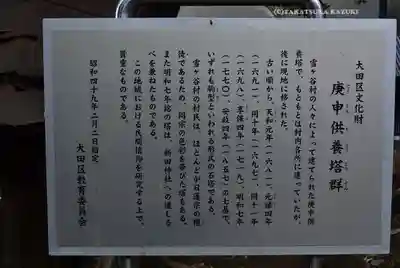 ©TAKATSUKA KAZUKI
大田区文化財
庚申供養塔群
雪ヶ谷村の人々によって建てられた庚申供
養塔で、もともとは村内各所に建っていたが、
後に現地に移された。
古い順から、天和元年(一六八一)、元禄四年
(一六九一)、同十年(一六九七)、同十一年
(一六九八)、享保四年(一七一九)、明和七年
(一七七〇)、安政四年(一八五七)の七基で、
いずれも駒型といわれる形式の石塔である。
雪ヶ谷村の村民は、ほとんどが日蓮宗の檀
徒であるため、同宗の色彩を帯びた塔もある。
また明和七年銘の塔は、新田神社への道しる
べを兼ねたものである。
この地域における民間信仰を研究する上で、
貴重なものである。
昭和四十九年二月二日指定
大田区教育委員会